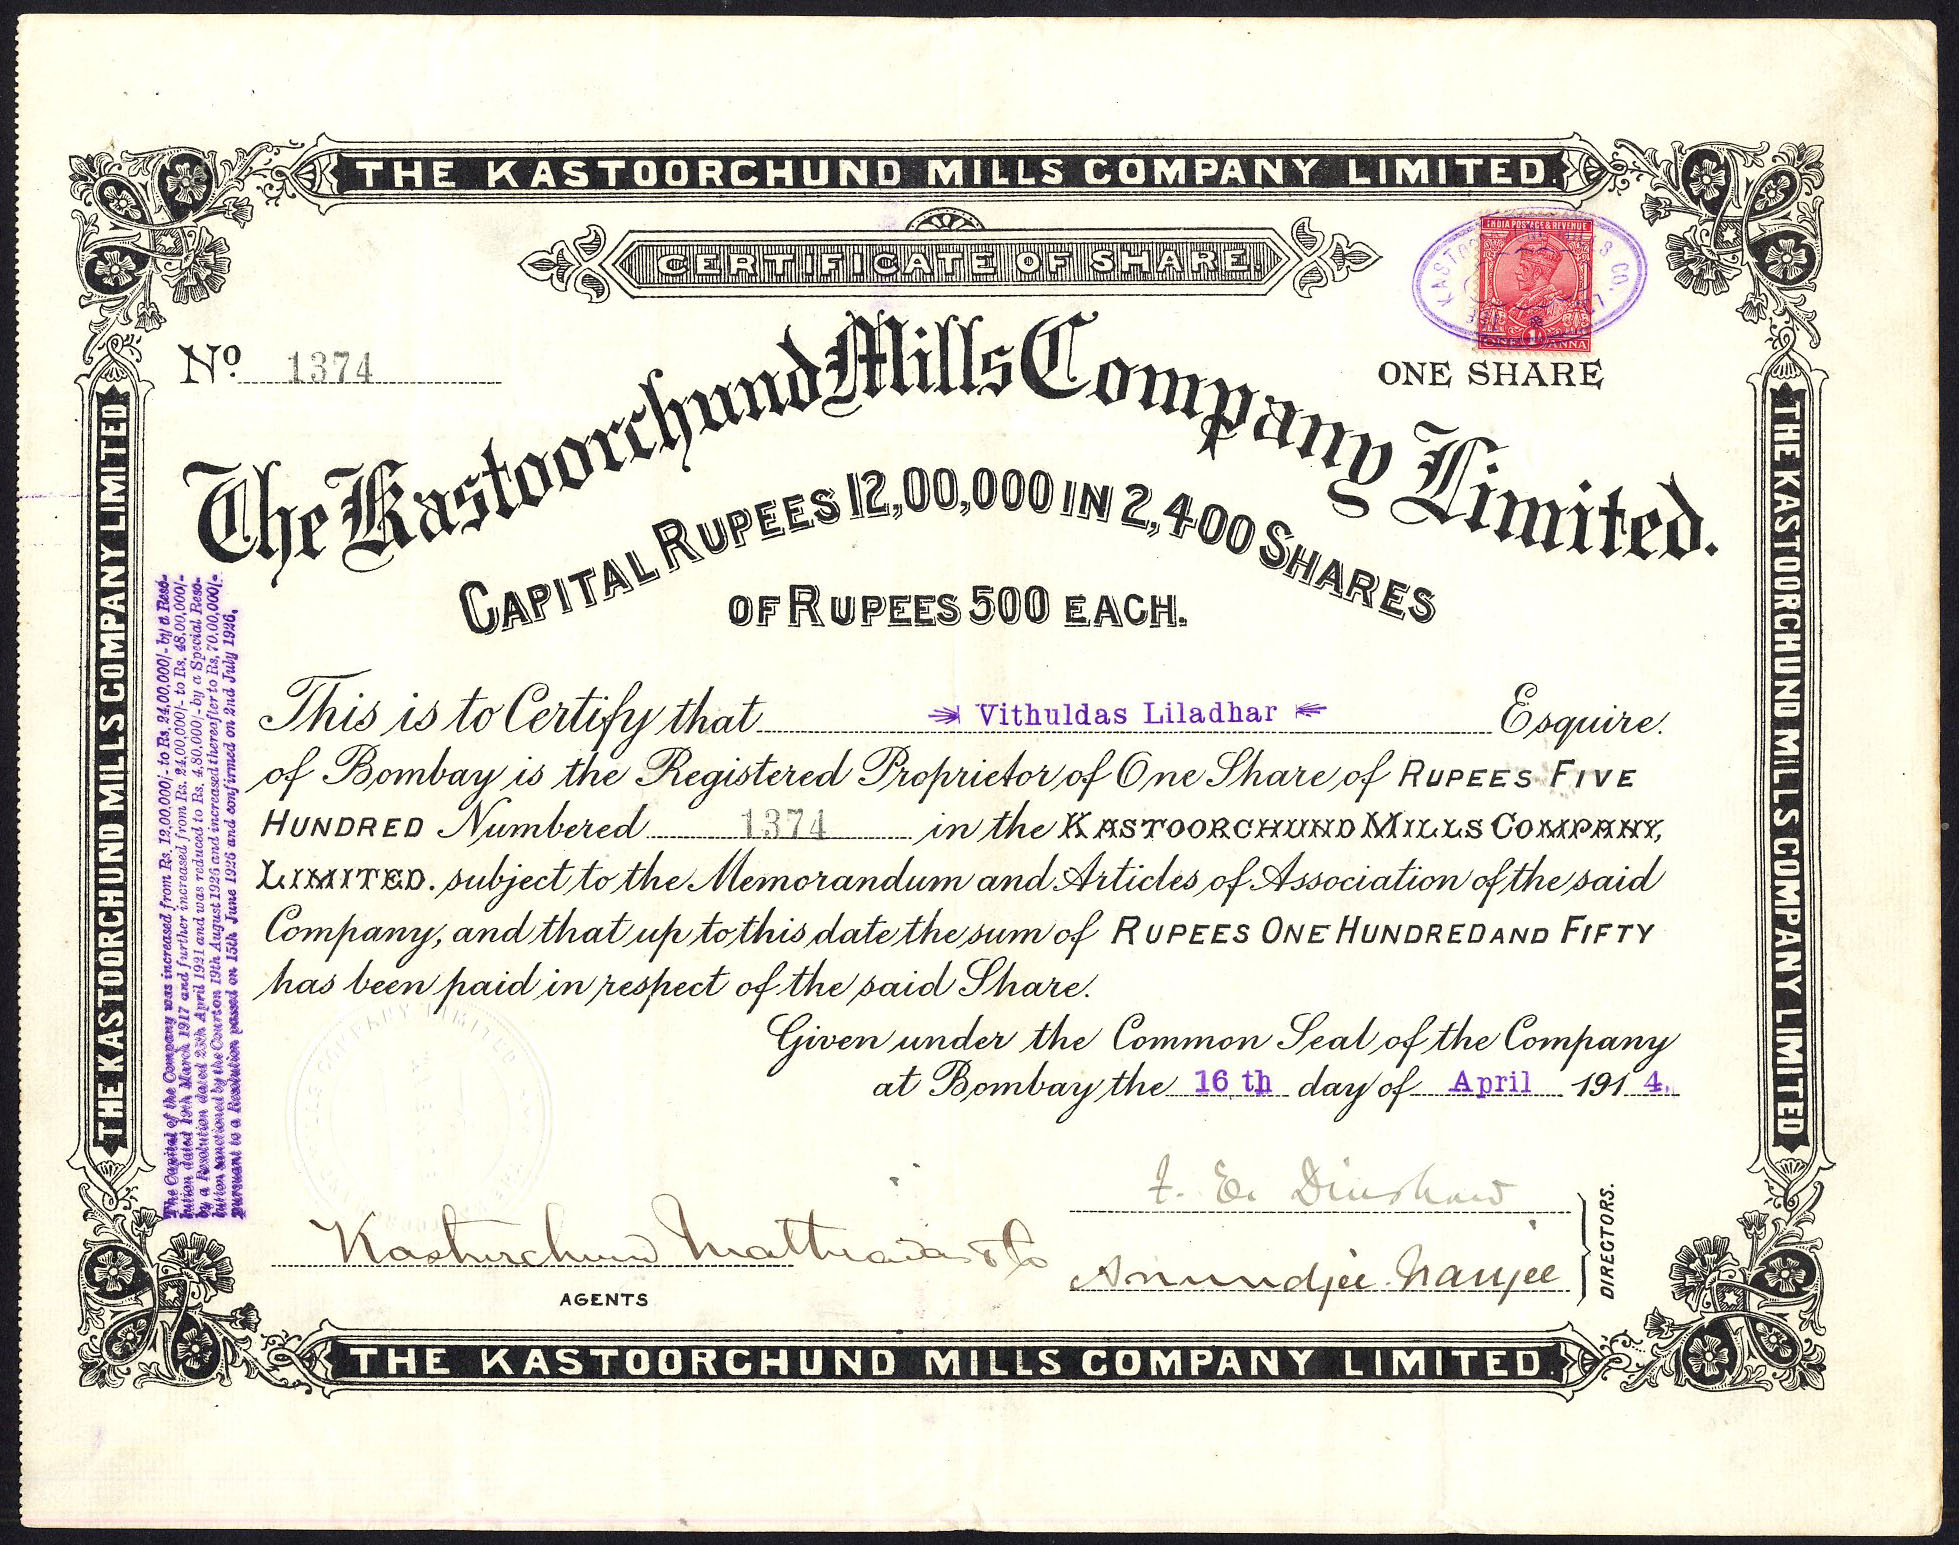 THE KASTOORCHUND MILLS COMPANY LIMITED.
CERTIFICATE OF SHARE.
INDIA POSTAGE & REVENUE
ONE 1 ANNA
No. 1374
ONE SHARE
The Kastoorchund Mills Company Limited.
CAPITAL RUPEES 12,00,000 IN 2,400 SHARES
OF RUPEES 500 EACH.
This is to Certify that Vithuldas Liladhar Esquire.
of Bombay is the Registered Proprietor of One Share of RUPEES FIVE
HUNDRED Numbered 1374 in the KASTOORCHUND MILLS COMPANY,
LIMITED. subject to the Memorandum and Articles of Association of the said
Company, and that up to this date the sum of RUPEES ONE HUNDRED AND FIFTY
has been paid in respect of the said Share.
Given under the Common Seal of the Company
at Bombay the 16th day of April 1914.
F. E. Dinshaw
Kasturchund Mathradas & Co
Anundjee Nanjee
DIRECTORS.
AGENTS
THE KASTOORCHUND MILLS COMPANY LIMITED.
THE KASTOORCHUND MILLS COMPANY LIMITED
THE KASTOORCHUND MILLS COMPANY LIMITED
The Capital of the Company was increased from Rs. 12,00,000/- to Rs. 24,00,000/- by a Reso-
lution dated 19th March 1917 and further increased from Rs. 24,00,000/- to Rs. 48,00,000/-
by a Resolution dated 25th April 1921 and was reduced to Rs. 4,80,000/- by a Special Reso-
lution sanctioned by the Court on 19th August 1926 and increased thereafter to Rs. 70,00,000/-
pursuant to a Resolution passed on 15th June 1926 and confirmed on 2nd July 1926.